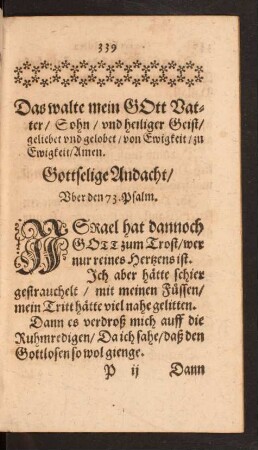 339
Das walte mein GOtt Vat-
ter / Sohn / vnd heiliger Geist /
geliebet vnd gelobet / von Ewigkeit / zu
Ewigkeit / Amen.
Gottselige Andacht /
Vber den 73. Psalm.
ISRael hat dannoch
GOTT zum Trost / wer
nur reines Hertzens ist.
Ich aber hätte schier
gestrauchelt / mit meinen Füssen /
mein Tritt hätte viel nahe gelitten.
Dann es verdroß mich auff die
Ruhmredigen / Da ich sahe / daß den
Gottlosen so wol gienge.
P ij Dann